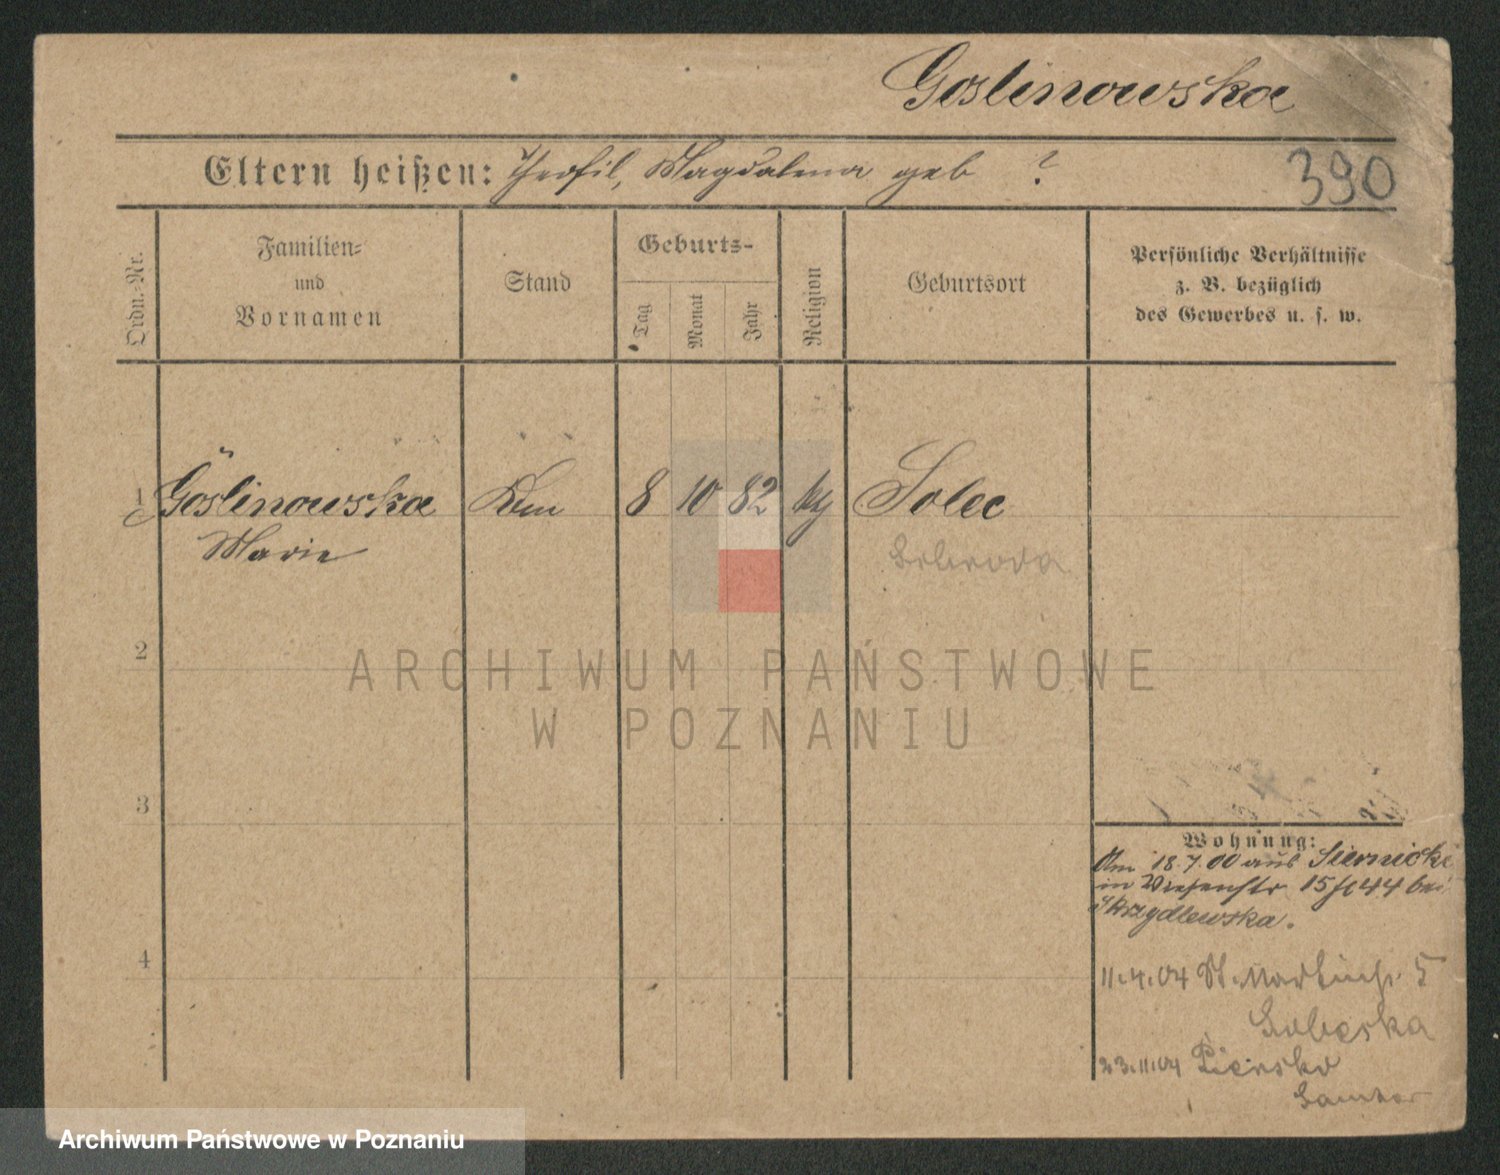 Goslinowska
Eltern heißen: Theofil, Magdalena geb ?
390
Ordn.-Nr.
Familien-
und
Vornamen
Stand
Geburts-
Tag
Monat
Jahr
Religion
Geburtsort
Persönliche Verhältnisse
z. B. bezüglich
des Gewerbes u. s. w.
1 Goslinowska
Marie
8 10 82 Solec
Schroda
2
ARCHIWUM PAŃSTWOWE
W POZNANIU
3
Wohnung:
Am 18.7.00 aus Siernicki
in Wiesenstr 15 bei
Skrzydlewska.
4
11.4.04 St. Martinstr. 5
23.11.04
Samter
Archiwum Państwowe w Poznaniu